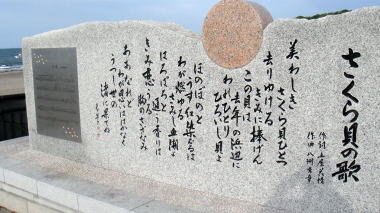 さくら貝の歌
作詞 土屋花情
作曲 八洲秀章
美わしき
さくら貝ひとつ
去りゆける
きみに捧げん
この貝は
去年の浜辺に
われひとり
ひろいし貝よ
ほのぼのと
うす紅染むるは
わが燃ゆる
さみし血潮よ
はろばろと通う香りは
きみ恋うる胸のさざなみ
ああなれど
わが思いははかなく
うつし世の
渚に果てぬ